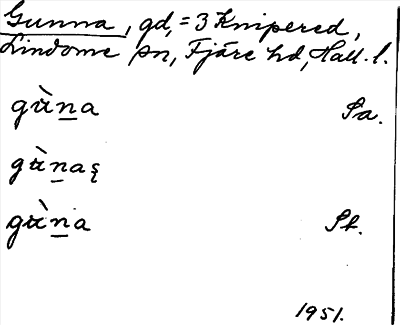 Gunna, gd, = 3 Knipered,
Lindome sn, Fjäre hd, Hall. l.
gùn̲a Sa.
gùn̲aş
gùn̲a St.
1951.